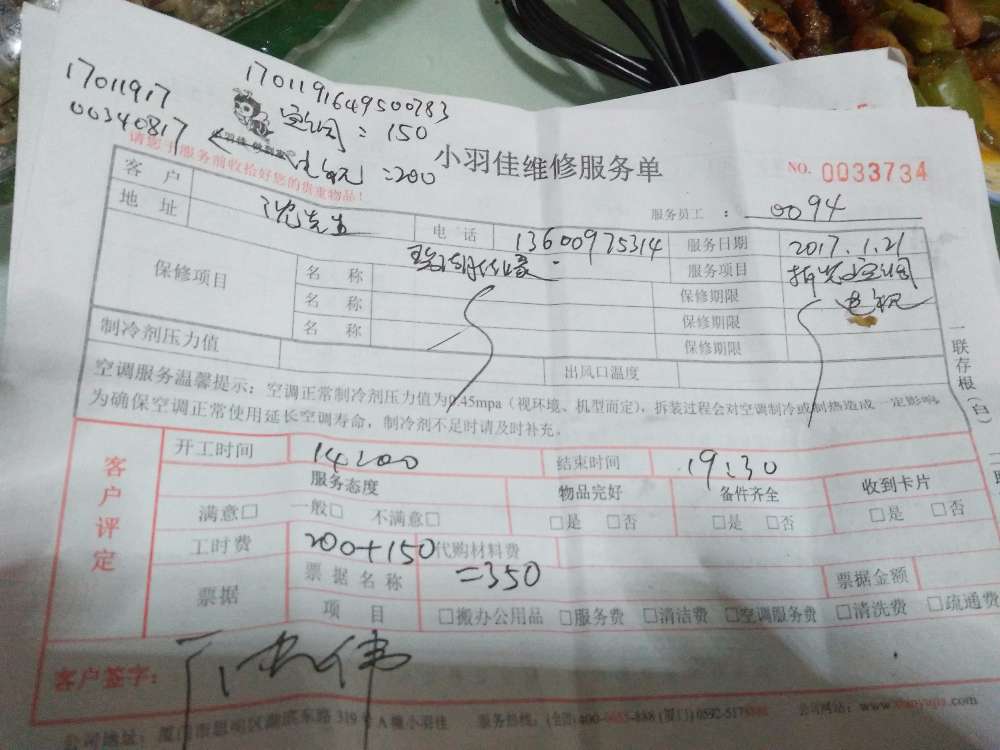 17011917
00340817
1701191649500783
空调 = 150
电视 = 200
请您于服务前收拾好您的贵重物品!
小羽佳维修服务单
NO. 0033734
服务员工 : 0094
客 户 沈先生 电 话 13600975314 服务日期 2017.1.21
地 址 服务项目 拆装空调
电视
保修项目 名 称 保修期限
名 称 保修期限
名 称 保修期限
制冷剂压力值 出风口温度
空调服务温馨提示:空调正常制冷剂压力值为0.45mpa(视环境、机型而定),拆装过程会对空调制冷或制热造成一定影响
为确保空调正常使用延长空调寿命,制冷剂不足时请及时补充。
一联存根(白)
客户评定
开工时间 14:00 结束时间 19:30
服务态度 物品完好 备件齐全 收到卡片
满意□ 一般□ 不满意□ □是 □否 □是 □否 □是 □否
工时费 200+150 代购材料费
=350
票据 票据名称 票据金额
项 目 □搬办公用品 □服务费 □清洁费 □空调服务费 □清洗费 □疏通费
客户签字:
公司地址:厦门市思明区湖滨东路 319 号 A 幢小羽佳 服务热线:(全国) 400-0655-888 (厦门) 0592-5178 公司网址:www.xiaoyujia.com